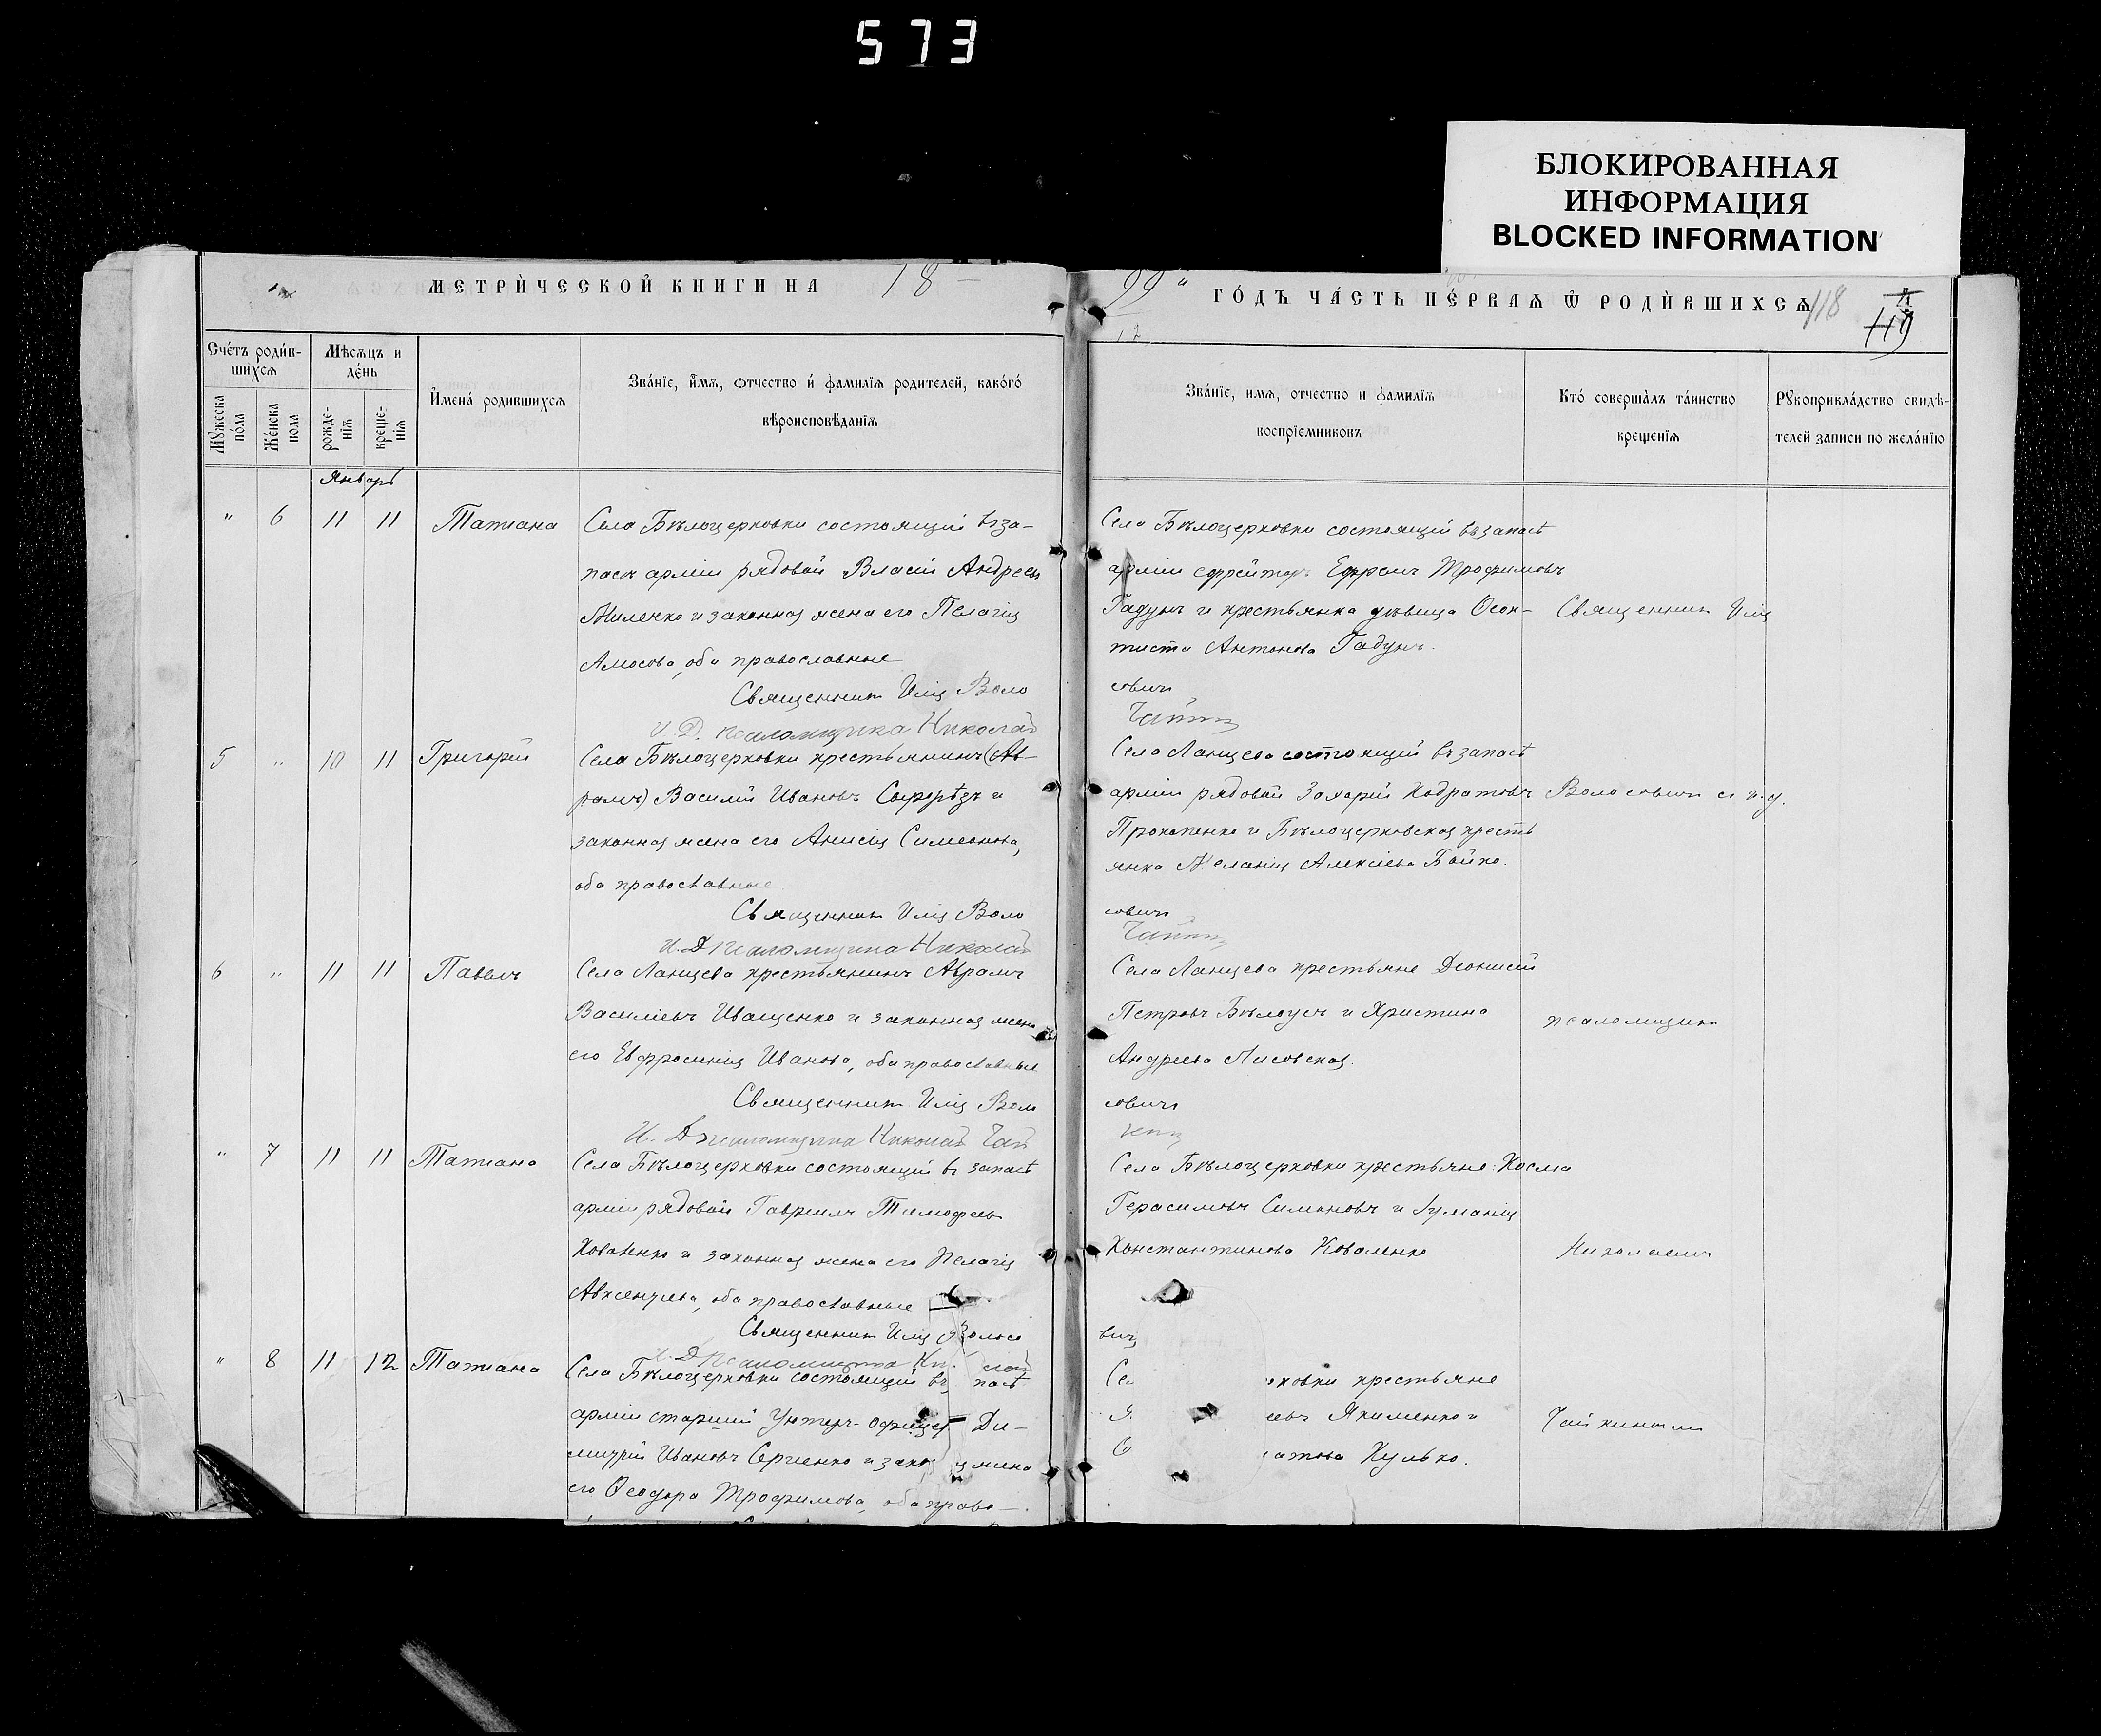 573
БЛОКИРОВАННАЯ
ИНФОРМАЦИЯ
BLOCKED INFORMATION
МЕТРИ́ЧЕСКОЙ КНИГИ НА 18
99 ГО́ДЪ ЧА́СТЬ ПЕ́РВАѦ Ѿ РОДИ́ВШИХСѦ 118
119
Сче́тъ роди́в-
шихсѧ
Мѣсѧцъ и
де́нь
Имена́ родившихсѧ
Зва́нїе, и́мѧ, ѻтчество и́ фамилїѧ родителей, како́го́
вѣроисповѣданїѧ
Му́жеска
по́ла
Же́нска
пола
рожде-
нїѧ
креще-
нїѧ
Зва́нїе, имѧ, отчество и фамилїѧ
воспрїемниковъ
Кто́ совершалъ та́инство
крещенїѧ
Рꙋкоприкла́дство свидѣ-
телей записи по жела́нїю
Январь
" 6 11 11 Татiана
Села Бѣлоцерковки состоящiй въ за-
пасѣ армiи рядовой Власiй Андреевъ
Миленко и законная жена его Пелагiя
Амосова, оба православные
Священникъ Илiя Воло
И. Д. псаломщика Николай
Села Бѣлоцерковки состоящiй въ запасѣ
армiи ефрейторъ Ефремъ Трофимовъ
Гадунъ и крестьянка дѣвица Ѳеок-
тиста Антонова Гадунъ.
Священникъ Илiя
совичъ
5 " 10 11 Григорiй
Села Бѣлоцерковки крестьянинъ (Ав-
рамъ) Василiй Ивановъ
законная жена его Анисiя Симеонова,
оба православные
Священникъ Илiя Воло
И. Д. псаломщика Николай
Села Ланцева состоящiй въ запасѣ
армiи рядовой Захарiй Кодратовъ
Прокопенко и Бѣлоцерковская кресть
янка Меланiя Алексiева Бойко.
Волосовичъ съ и. д.
совичъ
6 " 11 11 Павелъ
Села Ланцева крестьянинъ Аврамъ
Василiевъ Иващенко и законная жена
его Евфросинiя Иванова, оба православные
Священникъ Илiя Воло
И. Д. псаломщика Николай Чай
Села Ланцева крестьяне Дiонисiй
Петровъ Бѣлоусъ и Христина
Андреева Лисовская.
псаломщика
совичъ
" 7 11 11 Татiана
Села Бѣлоцерковки состоящiй въ запасѣ
армiи рядовой Гаврiилъ Тимофеевъ
Коваленко и законная жена его Пелагiя
оба православные
Священникъ Илiя Волосо
Села Бѣлоцерковки крестьяне: Косма
Герасимовъ Симоновъ и Iулианiя
Константинова Коваленко
Николаемъ
вичъ
" 8 11 12 Татiана
Села Бѣлоцерковки состоящiй въ пасѣ
армiи старшiй Унтеръ-офицер Ди-
митрiй Ивановъ Сергiенко и зако я жена
его Ѳеодора Трофимова, оба право-
Се рковки крестьяне
Я. евъ Якименко и
атова Кулько.
Чайкинымъ